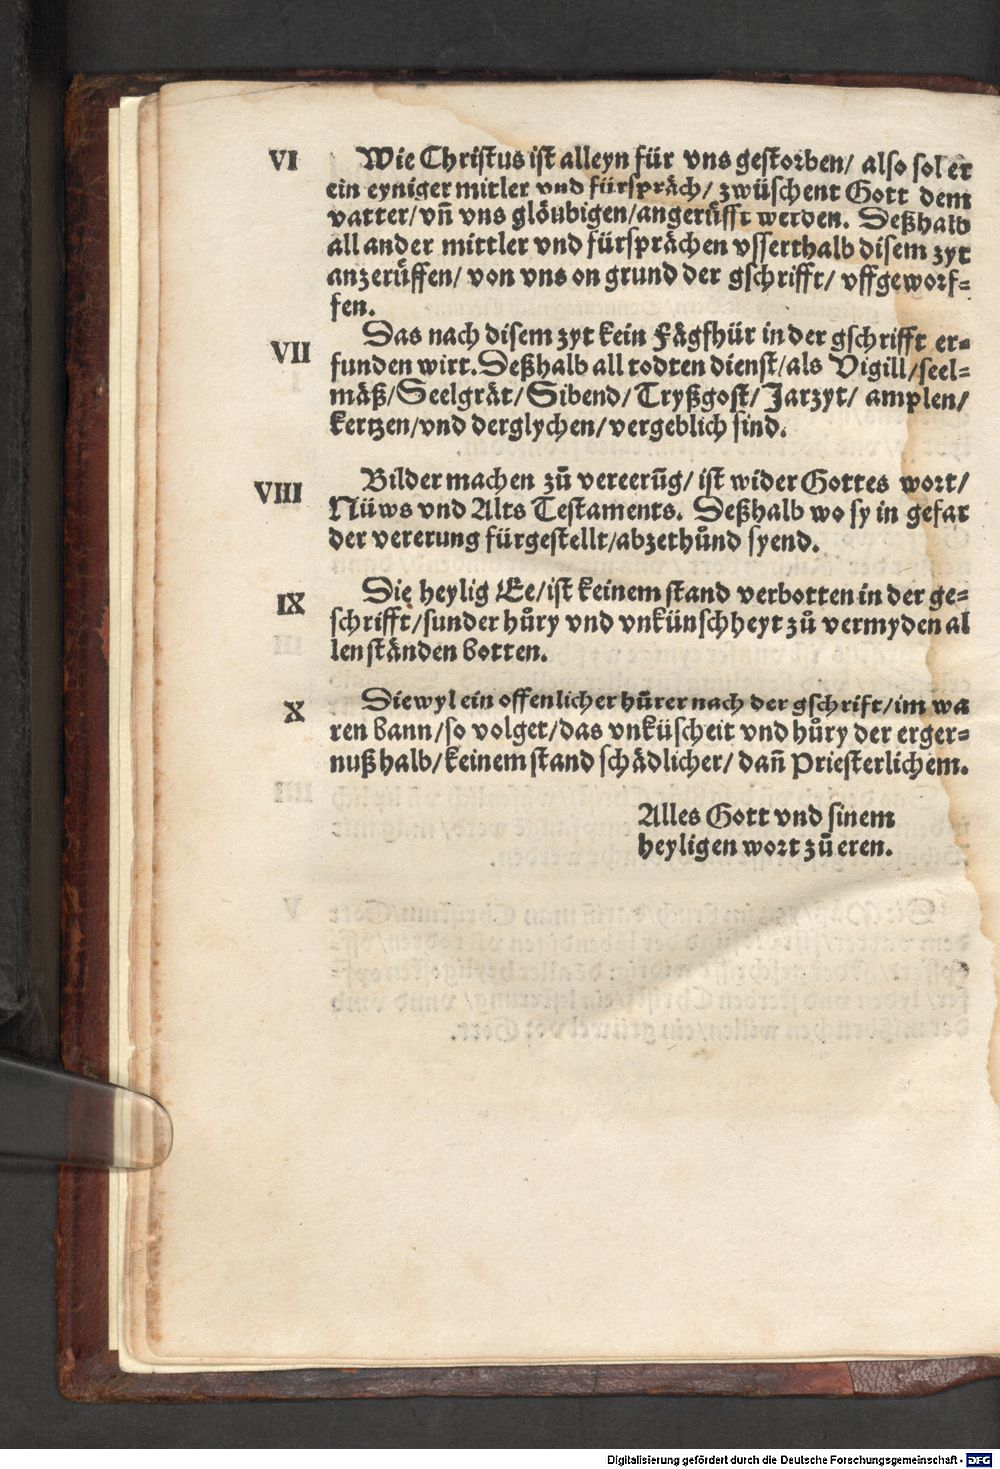 VI Wie Christus ist alleyn für vns gestorben/ also sol er
ein eyniger mitler vnd fürspräch/ zwüschent Gott dem
vatter/vn̄ vns glöubigen/angerüfft werden. Deßhalb
all ander mittler vnd fürsprächen vsserthalb disem zyt
anzerüffen/ von vns on grund der gschrifft/ vffgeworf-
fen.
VII Das nach disem zyt kein Fägfhür in der gschrifft er-
funden wirt. Deßhalb all todten dienst/als Vigill/seel-
mäß/Seelgrät/Sibend/Tryßgost/Jarzyt/ amplen/
kertzen/vnd derglychen/vergeblich sind.
VIII Bilder machen zů vereerūg/ ist wider Gottes wort/
Nüws vnd Alts Testaments. Deßhalb wo sy in gefar
der vererung fürgestellt/abzethůnd syend.
IX Die heylig Ee/ist keinem stand verbotten in der ge-
schrifft/sunder hůry vnd vnkünschheyt zů vermyden al
len ständen botten.
X Diewyl ein offenlicher hůrer nach der gschrift/im wa
ren bann/so volget/das vnküscheit vnd hůry der erger-
nuß halb/keinem stand schädlicher/dan̄ Priesterlichem.
Alles Gott vnd sinem
heyligen wort zů eren.
Digitalisierung gefördert durch die Deutsche Forschungsgemeinschaft - DFG